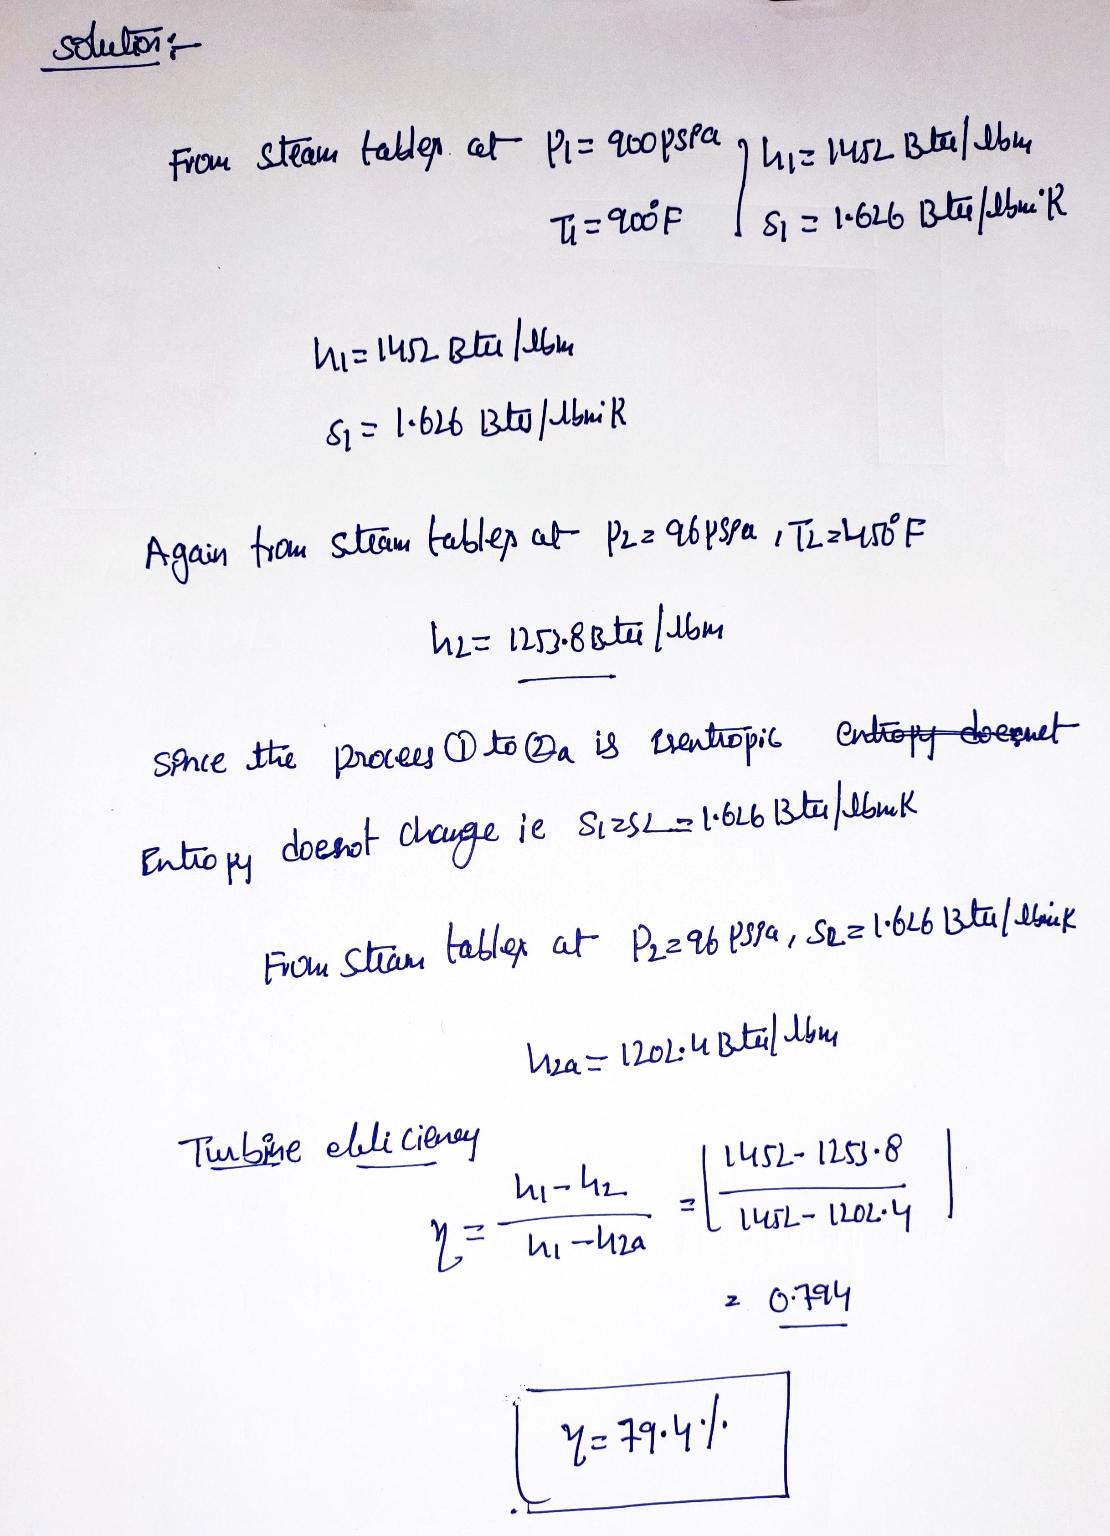 solution:-
From steam tables at P1 = 900 psia } h1 = 1452 Btu/lbm
T1 = 900°F s1 = 1.626 Btu/lbm°R
h1 = 1452 Btu/lbm
s1 = 1.626 Btu/lbm R
Again from steam tables at P2 = 96 psia, T2 = 450°F
h2 = 1253.8 Btu/lbm
Since the process ① to ②a is isentropic entropy doesnot
Entropy doesnot change ie s1 = s2 = 1.626 Btu/lbmK
From steam tables at P2 = 96 psia, s2 = 1.626 Btu/lbmK
h2a = 1202.4 Btu/lbm
Turbine efficiency
η = h1 - h2 / h1 - h2a = [1452 - 1253.8 / 1452 - 1202.4]
= 0.794
η = 79.4%